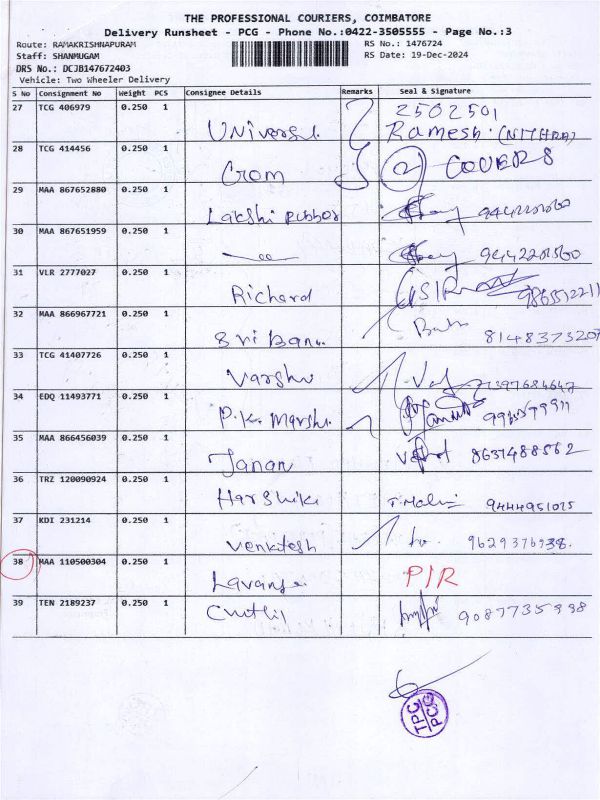 THE PROFESSIONAL COURIERS, COIMBATORE
Delivery Runsheet - PCG - Phone No.:0422-3505555 - Page No.:3
Route: RAMAKRISHNAPURAM
RS No.: 1476724
Staff: SHANMUGAM
RS Date: 19-Dec-2024
DRS No.: DCJB147672403
Vehicle: Two Wheeler Delivery
S No Consignment No Weight PCS Consignee Details Remarks Seal & Signature
27 TCG 406979 0.250 1 2502501
Universal Ramesh (NITHRA)
28 TCG 414456 0.250 1 (2) COVERS
Crom
29 MAA 867652880 0.250 1
Lakshi Rubber
30 MAA 867651959 0.250 1
9442201560
31 VLR 2777027 0.250 1
Richard
32 MAA 866967721 0.250 1
Sri Banu 8148373207
33 TCG 41407726 0.250 1
Varshu
34 EDQ 11493771 0.250 1
P.K. Marshi
35 MAA 866456039 0.250 1
Janan 8637488562
36 TRZ 120090924 0.250 1
Harshika T. Malini 9444951075
37 KDI 231214 0.250 1
Venkitesh 9629376938.
38 MAA 110500304 0.250 1 P/R
Lavanya
39 TEN 2189237 0.250 1
9087735998
TPC
PCG